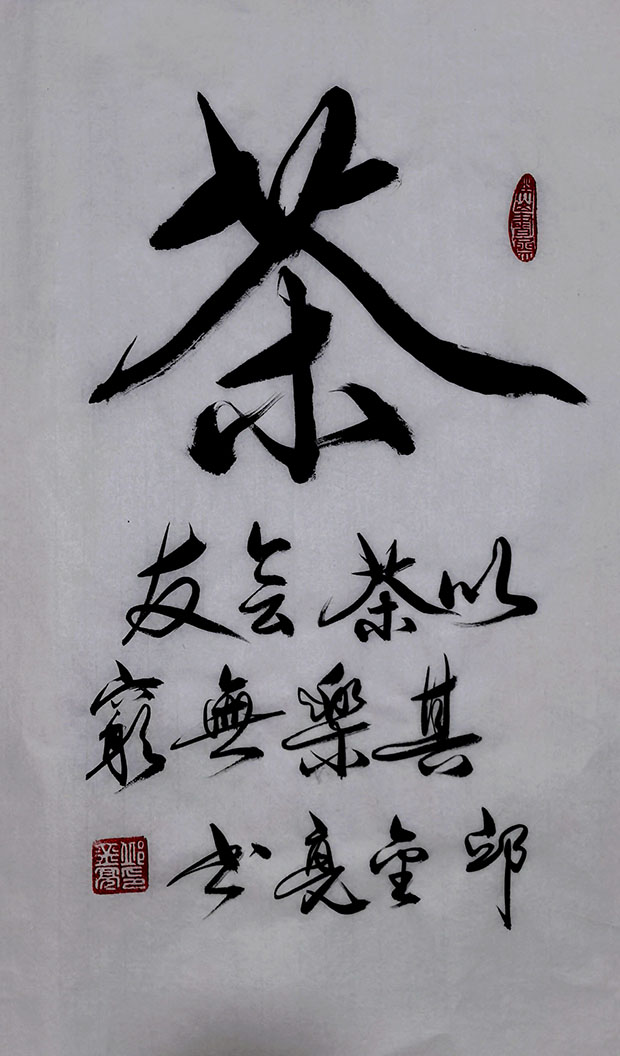 茶
以茶会友
其樂無窮
邱金亮书